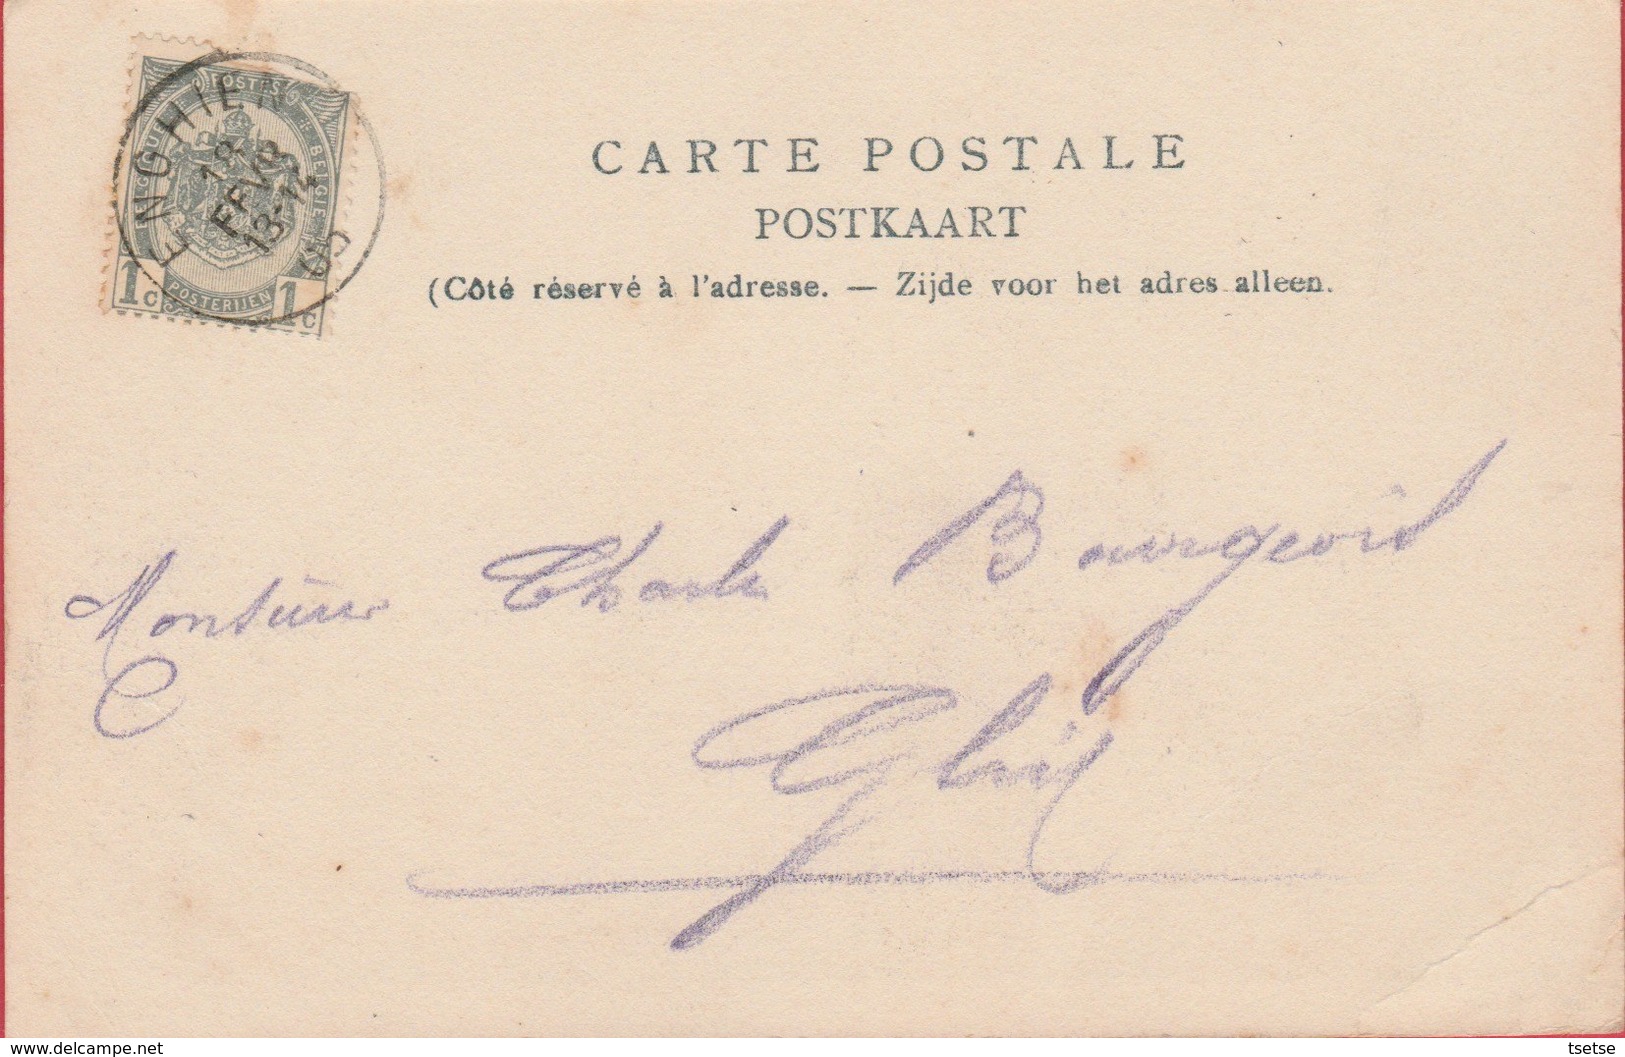 ENGHIEN
18
FEVR
13-14
05
POSTES
BELGIQUE BELGIE
1c POSTERIJEN 1c
CARTE POSTALE
POSTKAART
(Côté réservé à l'adresse. — Zijde voor het adres alleen.
Monsieur Charles Bourgeois
tsetse